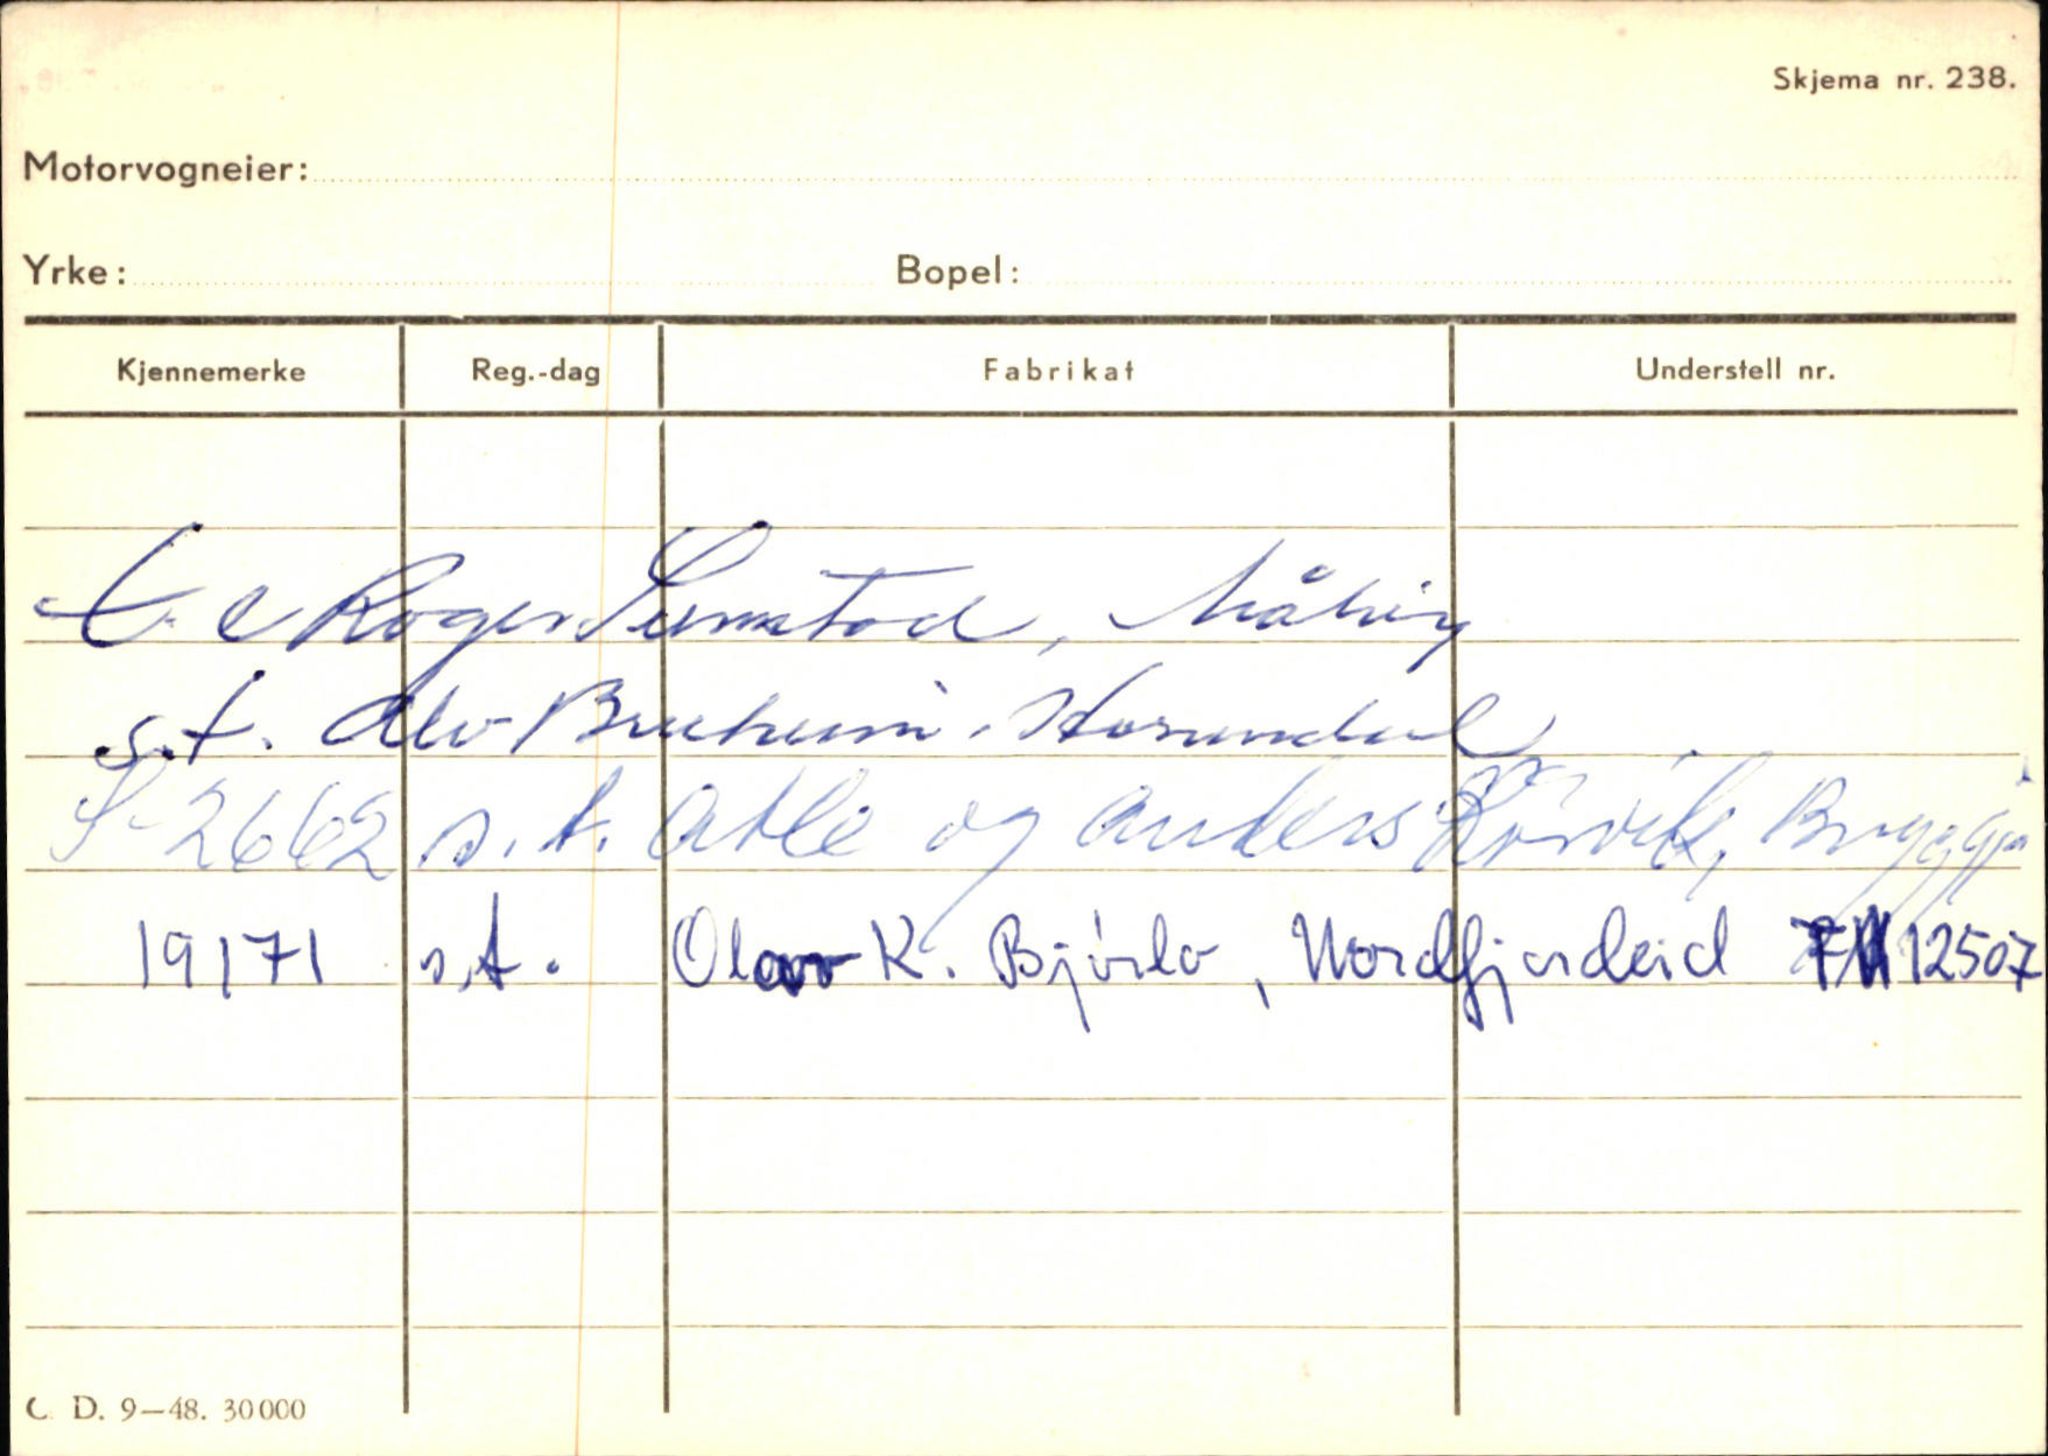 Skjema nr. 238.
Motorvogneier:
Yrke: Bopel:
Kjennemerke Reg.-dag Fabrikat Understell nr.
Roger
s.t. Bruheim, Hornindal
S-2662 s.t. Atle og Anders Rørvik, Bryggja
19/71 s.t. Olav K. Bjørlo, Nordfjordeid 12507
C. D. 9—48. 30000